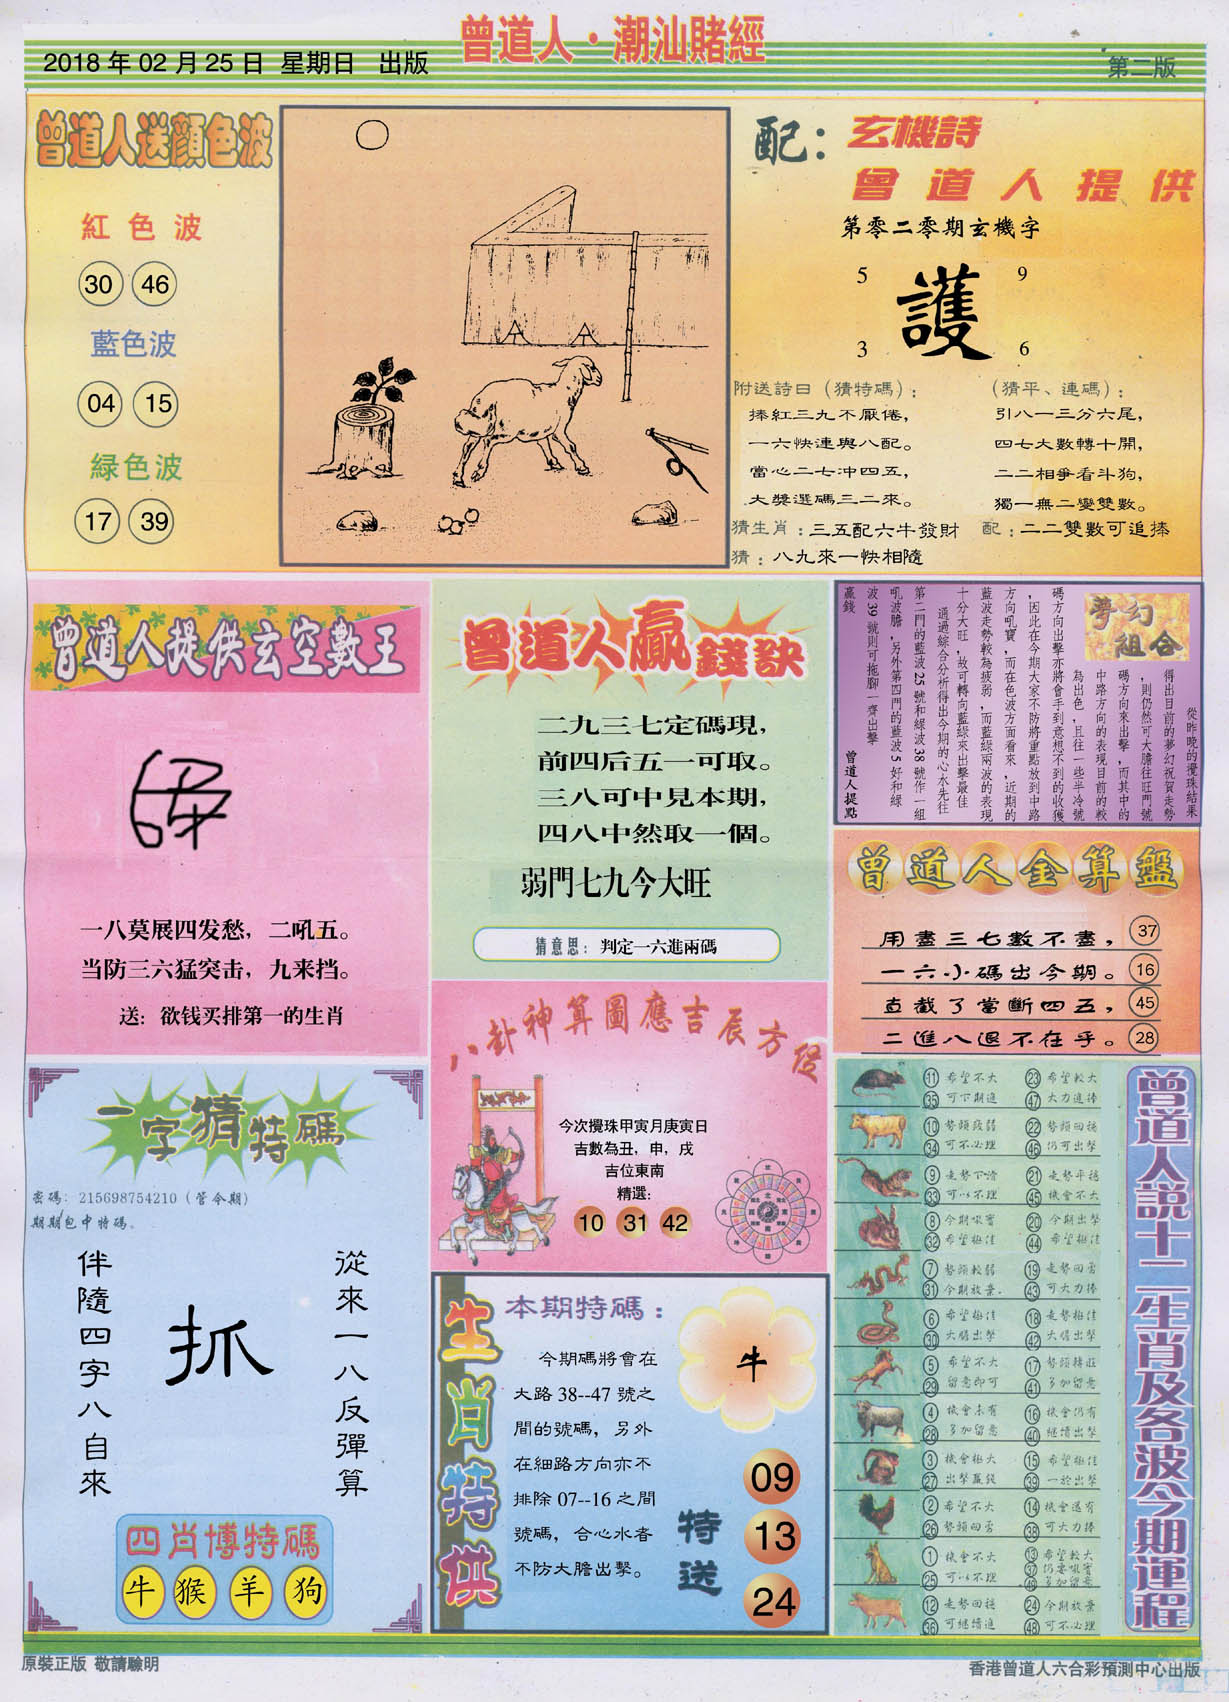 曾道人·潮汕賭經
2018 年 02 月 25 日 星期日 出版
第二版
曾道人送顏色波
紅色波
30 46
藍色波
04 15
緑色波
17 39
配：玄機詩
曾道人提供
第零二零期玄機字
5 9
護
3 6
附送詩曰（猜特碼）：
捧紅三九不厭倦，
一六快連與八配。
當心二七沖四五，
大獎選碼三二來。
（猜平、連碼）：
引八一三分六尾，
四七大數轉十開，
二二相爭看斗狗，
獨一無二變雙數。
猜生肖：三五配六牛發財
配：二二雙數可追捧
猜：八九來一快相隨
曾道人提供玄空數王
一八莫展四发愁，二吼五。
当防三六猛突击，九来挡。
送：欲钱买排第一的生肖
曾道人贏錢訣
二九三七定碼現，
前四后五一可取。
三八可中見本期，
四八中然取一個。
弱門七九今大旺
猜意思：判定一六進兩碼
夢幻組合
從昨晚的攪珠結果
得出目前的夢幻祝賀走勢
，則仍然可大膽往旺門號
碼方向來出擊，而其中的
中路方向的表現目前的較
為出色，且往一些半冷號
碼方向出擊亦將會手到意想不到的收獲
，因此在今期大家不防將重點放到中路
方向吼寶，而在色波方面看來，近期的
藍波走勢較為疲弱，而藍綠兩波的表現
十分大旺，故可轉向藍綠來出擊最佳
通過綜合分析得出今期的心水先往
第二門的藍波 25 號和綠波 38 號作一組
吼波膽，另外第四門的藍波 5 好和綠
波 39 號則可拖腳一齊出擊
贏錢
曾道人提點
曾道人金算盤
用盡三七數不盡， 37
一六小碼出今期。 16
直截了當斷四五， 45
二進八退不在乎。 28
八卦神算圖應吉辰方位
今次攪珠甲寅月庚寅日
吉數為丑，申，戌
吉位東南
精選：
10 31 42
一字猜特碼
密碼：215698754210（管令期）
期期包中特碼。
從來一八反彈算
抓
伴隨四字八自來
四肖博特碼
牛 猴 羊 狗
生肖特供
本期特碼：
今期碼將會在
大路 38--47 號之
間的號碼，另外
在細路方向亦不
排除 07--16 之間
號碼，合心水者
不防大膽出擊。
牛
特送
09
13
24
曾道人説十二生肖及各波今期運程
11 希望不大 23 希望較大
35 可下期進 47 大力進捧
10 勢頭疲弱 22 勢頭回穩
34 可不必理 46 仍可出擊
9 走勢下滑 21 走勢平穩
33 可以不理 45 機會不大
8 今期吸寶 20 今期出擊
32 希望極佳 44 希望極佳
7 勢頭較弱 19 走勢回勇
31 今期放棄 43 可大力捧
6 希望極佳 18 走勢極佳
30 大膽出擊 42 大膽出擊
5 希望不大 17 勢頭轉旺
29 留意即可 41 多加留意
4 機會未有 16 機會仍有
28 多加留意 40 繼續出擊
3 機會極大 15 希望極佳
27 出擊贏錢 39 一於出擊
2 希望不大 14 機會還有
26 勢頭回勇 38 可大力捧
1 機會不大 13 希望較大
25 可以不理 37 仍要吸寶
49 多加留意
12 走勢回穩 24 今期放棄
36 可繼續進 48 可不必理
原裝正版 敬請驗明
香港曾道人六合彩預測中心出版